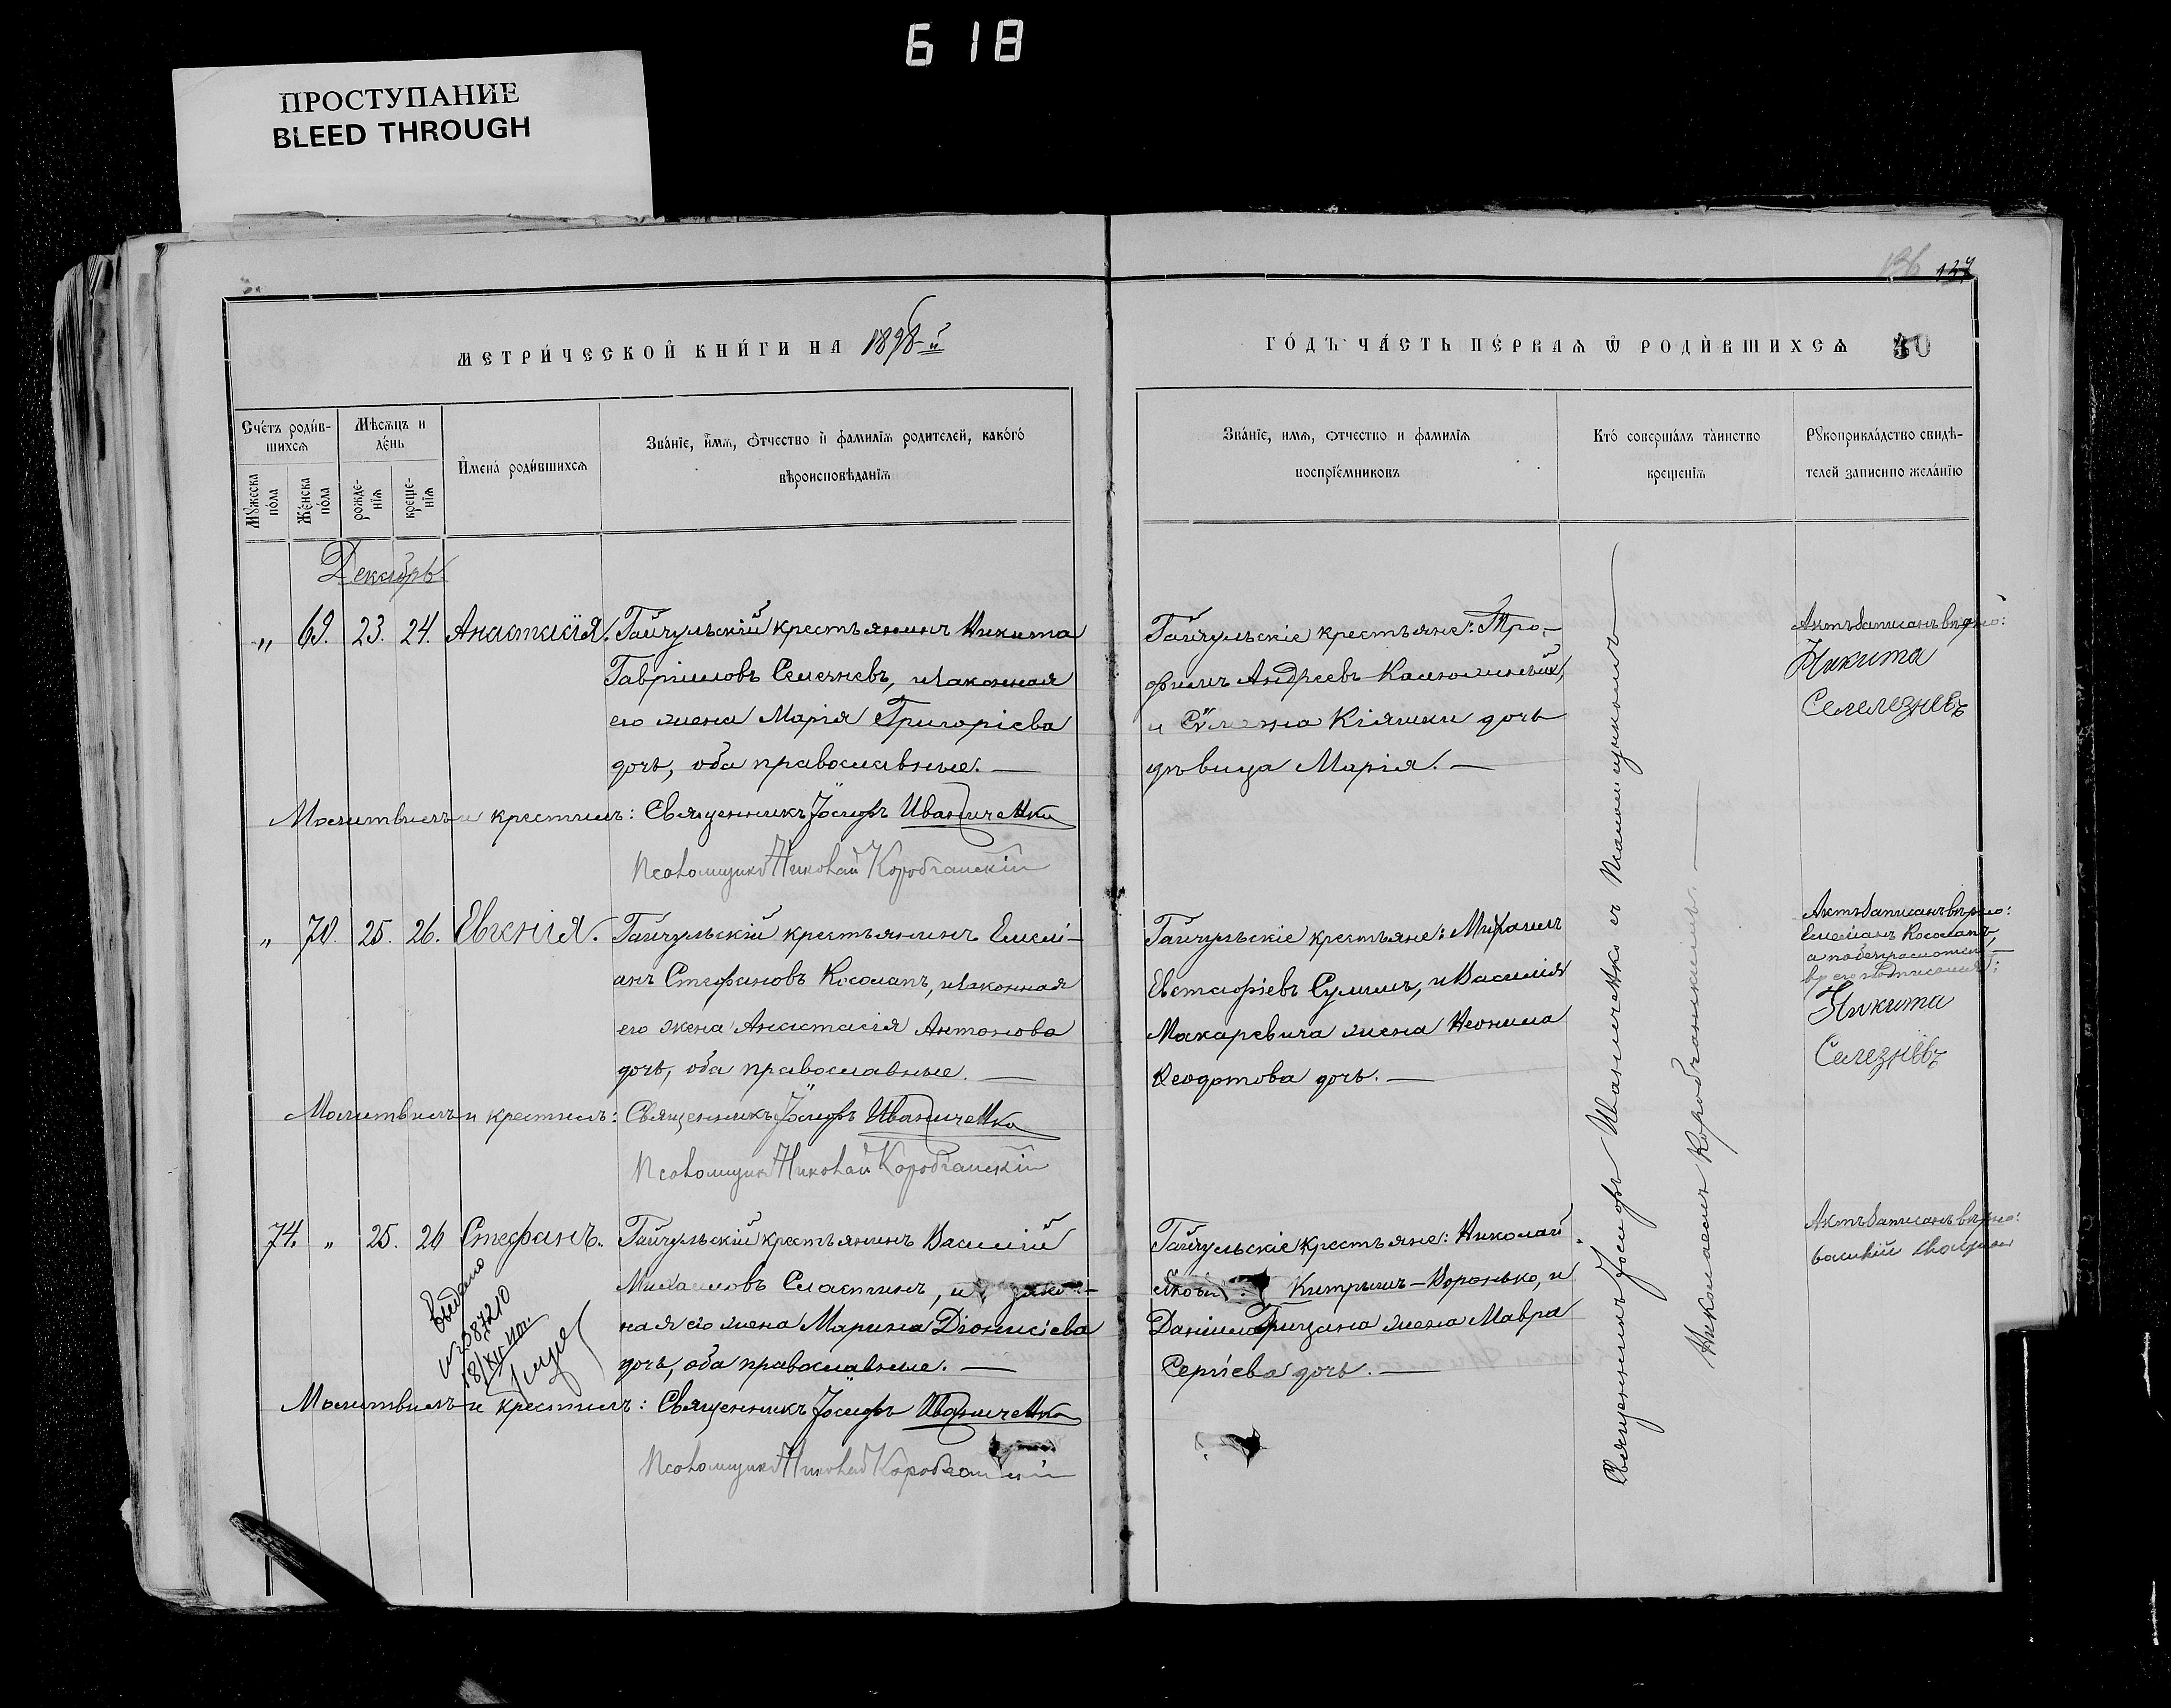 618
ПРОСТУПАНИЕ
BLEED THROUGH
136 137
МЕТРИ́ЧЕСКОЙ КНИ́ГИ НА 1898-й
ГО́ДЪ ЧА́СТЬ ПЕ́РВАЯ Ѿ РОДИ́ВШИХСЯ 50
Сче́тъ роди́в-
шихся
Мꙋ́жеска по́ла
Же́нска по́ла
Мѣ́сяцъ и
де́нь
рожде-
нія
креще-
нія
И҆мена̀ роди́вшихся
Зва́ніе, и҆́мя, ѻ҆́тчество и҆ фами́лія родителей, како́го
вѣроисповѣ́данія
Зва́ніе, имя, ѻтчество и фамилія
воспріе́мниковъ
Кто́ соверша́лъ та̀инство
крещенія
Рꙋкоприкла́дство свидѣ-
телей записи по жела́нію
Декабрь
„ 69. 23. 24. Анастасія.
Гайчульскій крестьянинъ Никита
Гавріиловъ Селезневъ, и законная
его жена Марія Григоріева
дочь, оба православные. —
Молитвилъ и крестилъ: Священникъ Іосифъ Иваниченко
Псаломщикъ Николай Коробчанскій
Гайчульскіе крестьяне: Тро-
фимъ Андреевъ
дочь
дѣвица Марія. —
Актъ записанъ вѣрно:
Никита
Селезневъ
„ 70. 25. 26. Евгенія.
Гайчульскій крестьянинъ Емелі-
анъ Стефановъ Косолапъ, и законная
его жена Анастасія Антонова
дочь, оба православные. —
Молитвилъ и крестилъ: Священникъ Іосифъ Иваниченко
Псаломщикъ Николай Коробчанскій
Гайчульскіе крестьяне: Михаилъ
Евстафіевъ Сулимъ, и Василія
Макаревича жена Неонила
Ѳеодотова дочь. —
Актъ записанъ вѣрно:
Емеліанъ Косолапъ,
а по безграмотности
его
Никита
Селезневъ
74. „ 25. 26 Стефанъ.
Гайчульскій крестьянинъ Василій
Михаиловъ Сластинъ, и закон-
ная его жена Марина Діонисіева
дочь, оба православные. —
Молитвилъ и крестилъ: Священникъ Іосифъ Иваниченко
Псаломщикъ Николай Коробчанскій
Гайчульскіе крестьяне: Николай
Воронько, и
Даніила жена Мавра
Сергіева дочь. —
Актъ записанъ вѣрно:
Василій
Священникъ Іосифъ Иваниченко съ Псаломщикомъ
Николаемъ Коробчанскимъ. —